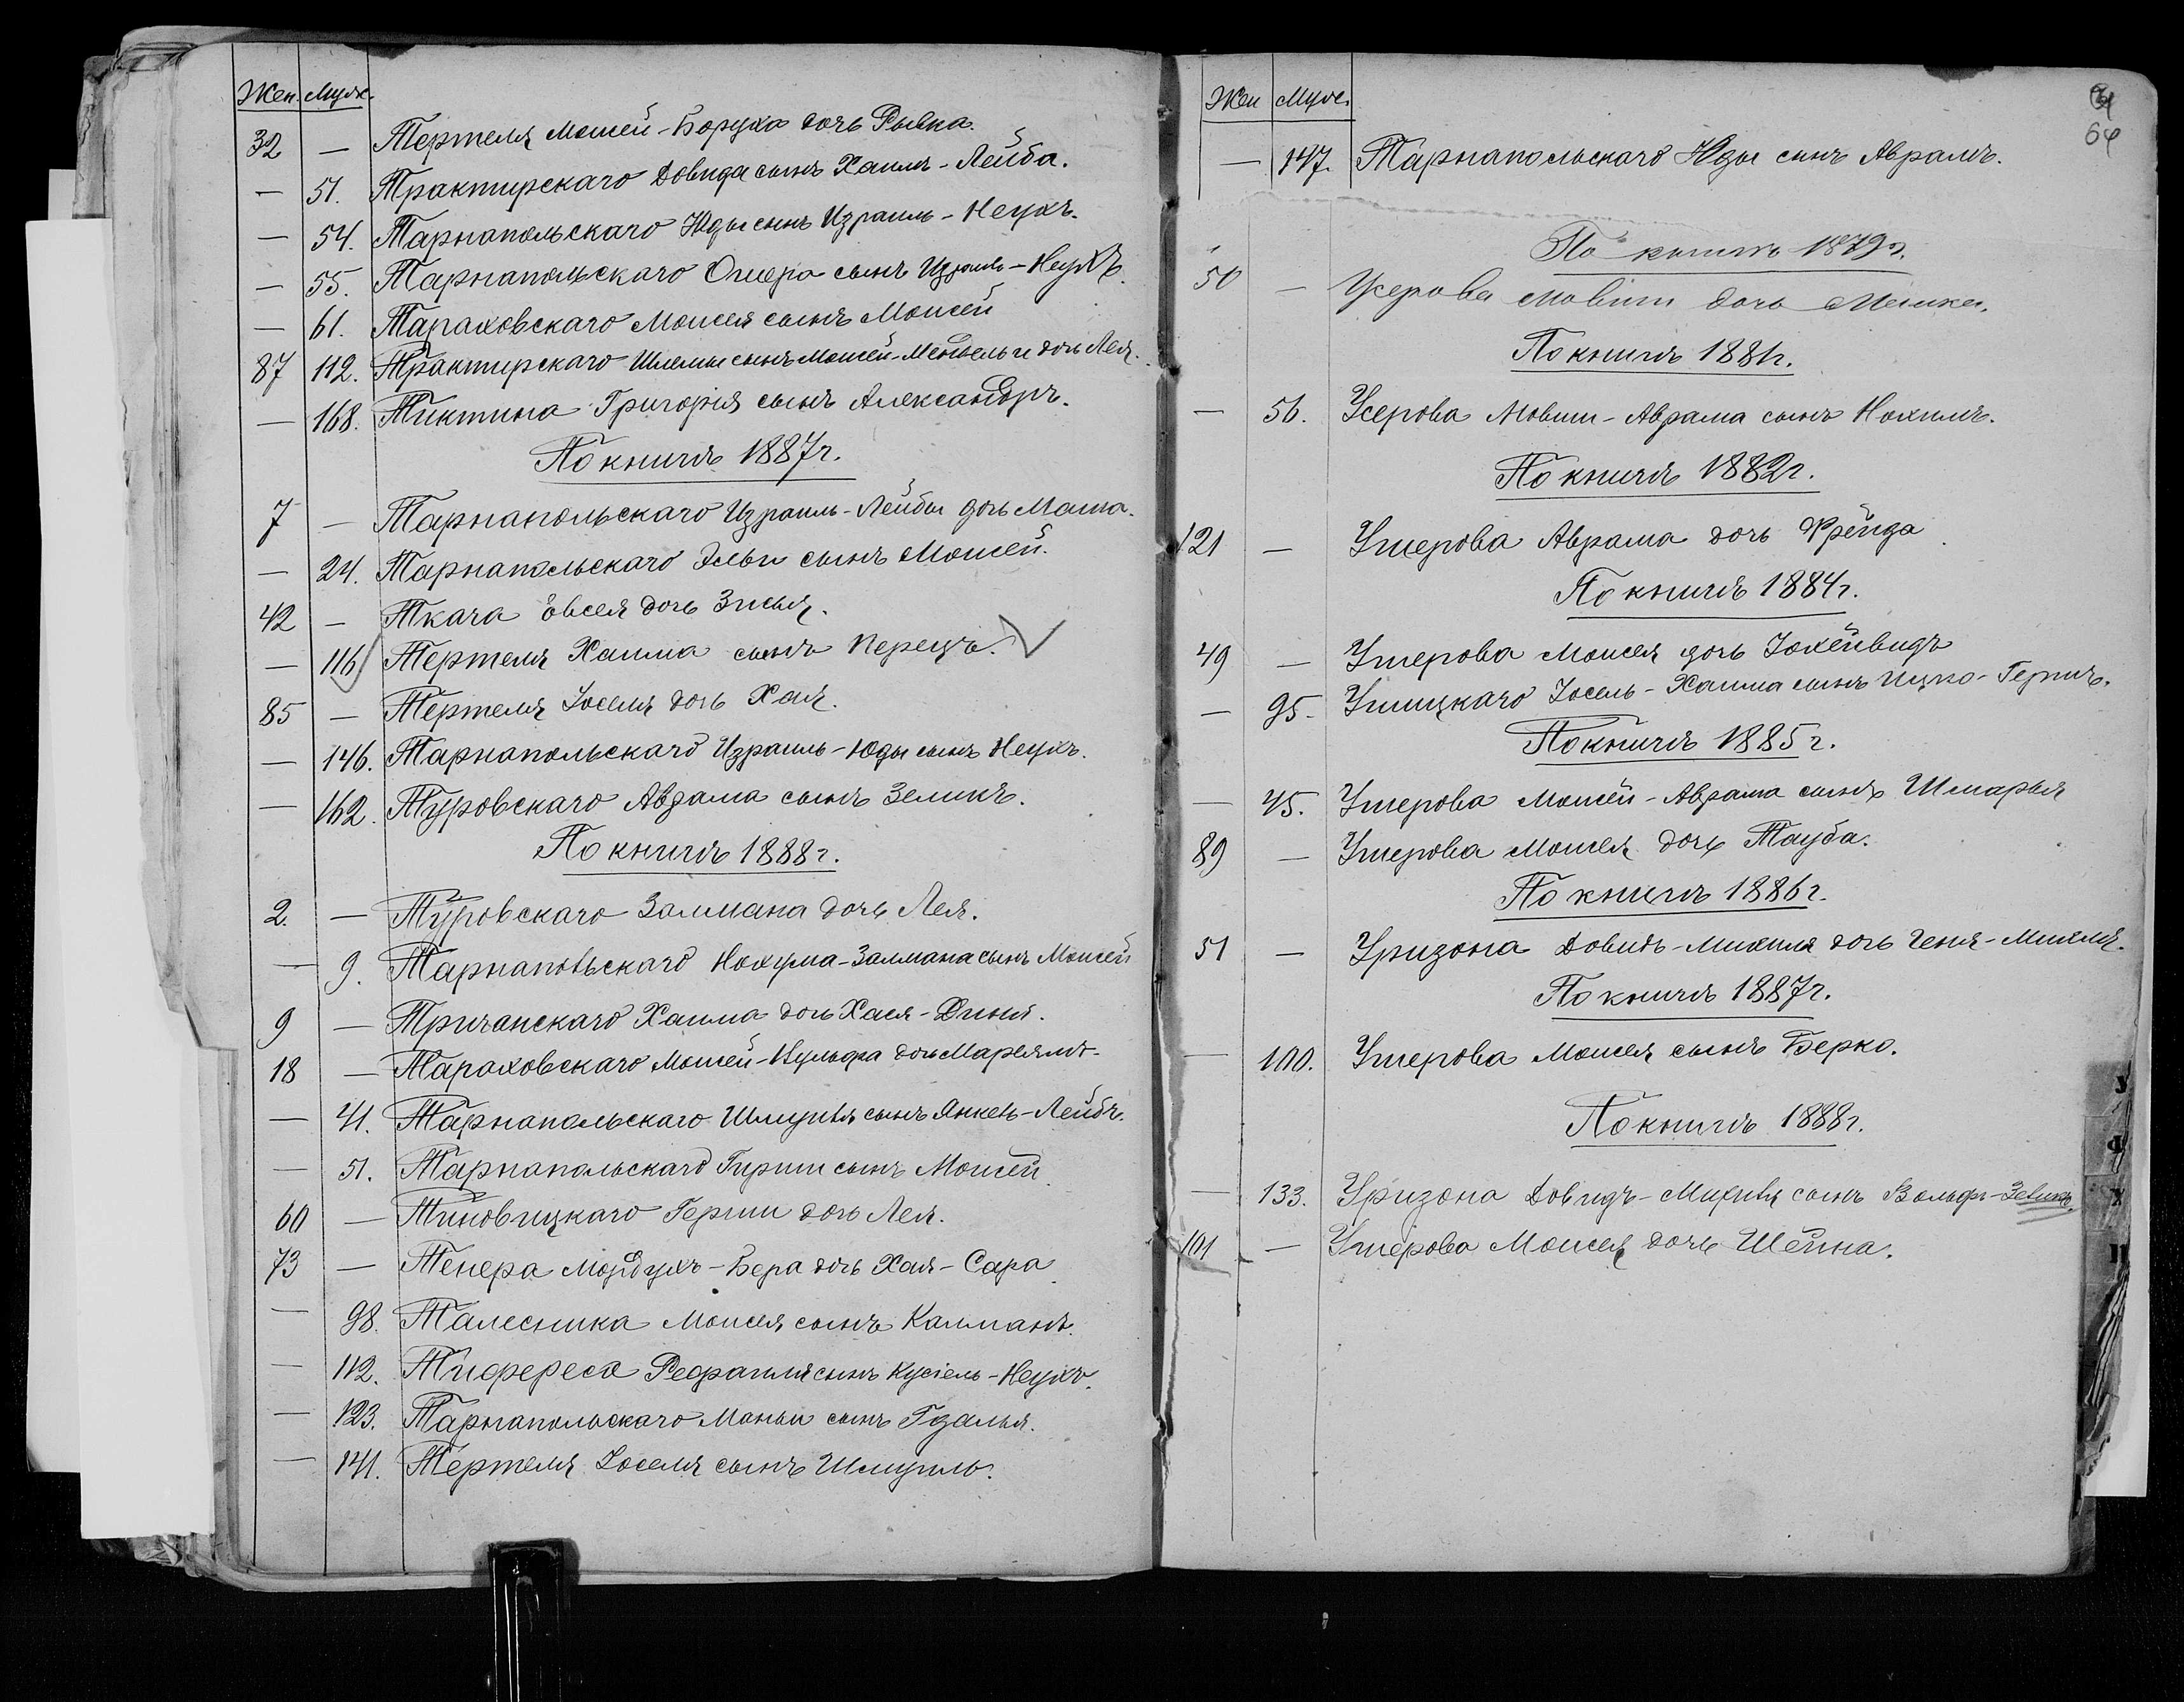 Жен. Муж.
32 — Тертеля Мошей-Боруха дочь Рывка.
— 51. Трактирскаго Довида сынъ Хаимъ-Лейба.
— 54. Тарнапольскаго Юды сынъ Израиль-Неухъ.
— 55. Тарнапольскаго Ошера сынъ Израиль-Неухъ.
— 61. Тараховскаго Моисея сынъ Моисей
87 112. Трактирскаго Шлемы сынъ Мошей-Мендель и дочь Лея.
— 168. Тиктина Григорія сынъ Александръ.
По книгѣ 1887г.
7 — Тарнапольскаго Израиль-Лейбы дочь Маша.
— 24. Тарнапольскаго Эльи сынъ Мошей.
42 — Ткача Овсея дочь Зисья.
— 116 Тертеля Хаима сынъ Перецъ.
85 — Тертеля Іоселя дочь Хая.
— 146. Тарнапольскаго Израиль-Юды сынъ Неухъ.
— 162. Туровскаго Абрама сынъ Зеликъ.
По книгѣ 1888г.
2. — Туровскаго Залмана дочь Лея.
— 9. Тарнапольскаго Нохума-Залмана сынъ Моисей
9 — Тричанскаго Хаима дочь Хася-Диня.
18 — Тараховскаго Мошей-Вульфа дочь Маріямъ.
— 41. Тарнапольскаго Шмуиля сынъ Янкель-Лейбъ.
— 51. Тарнапольскаго Гирши сынъ Мошей.
60 — Тиновицкаго Герши дочь Лея.
73 — Тенера Мордухъ-Бера дочь Хая-Сара
— 98. Талесника Моисея сынъ Калманъ.
— 112. Тифереса Рефаиля сынъ Кусіель-Неухъ.
— 123. Тарнапольскаго Маньи сынъ Гдалья.
— 141. Тертеля Іоселя сынъ Шмуиль.
Жен Муж.
64
— 147. Тарнапольскаго Юды сынъ Аврамъ.
По книгѣ 1879г.
50 — Усерова Мовши дочь
По книгѣ 1881г.
— 56. Усерова Мовши-Аврама сынъ Нохимъ.
По книгѣ 1882г.
121 — Ушерова Аврама дочь Фрейда
По книгѣ 1884г.
49 — Ушерова Моисея дочь Іохейвидъ
— 95. Ушицкаго Іосель-Хаима сынъ Ицко-Гершъ.
По книгѣ 1885г.
— 45. Ушерова Мошей-Аврама сынъ Шмарья
89 — Ушерова Мошея дочь Тауба.
По книгѣ 1886г.
51 — Уризона Довидъ-Михиля дочь Геня-Михля.
По книгѣ 1887г.
— 100. Ушерова Моисея сынъ Берко.
По книгѣ 1888г.
— 133. Уризона Довидъ-Михиля сынъ Вольфъ-Зеликъ.
101 — Ушерова Моисея дочь Шейна.
У
Ф
Х
Ц